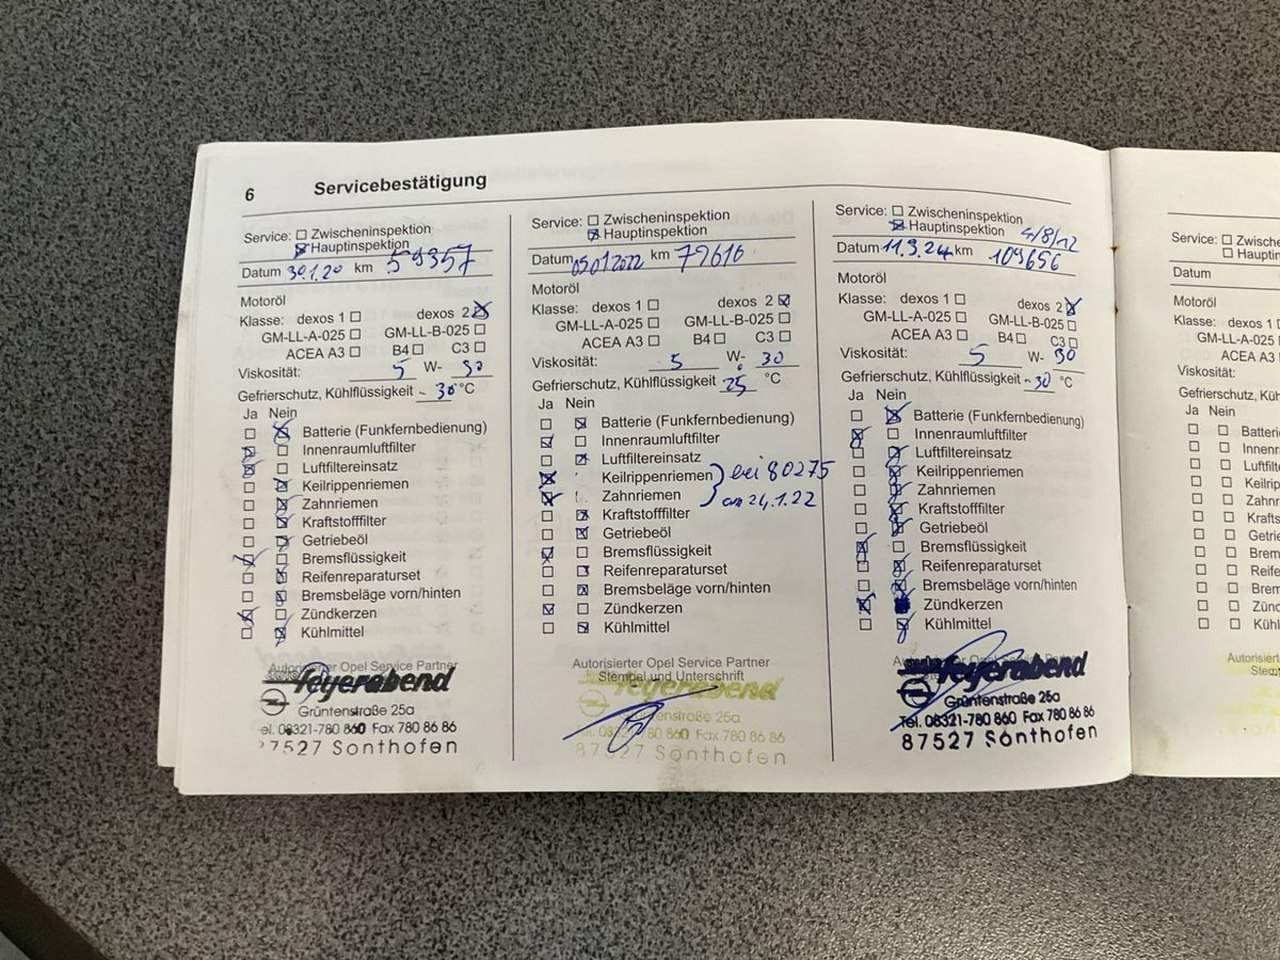 6 Servicebestätigung
Service: Zwischeninspektion
Hauptinspektion
Datum 30.1.20 km 59357
Motoröl
Klasse: dexos 1 dexos 2
GM-LL-A-025 GM-LL-B-025
ACEA A3 B4 C3
Viskosität: 5 W- 30
Gefrierschutz, Kühlflüssigkeit - 30 °C
Ja Nein
Batterie (Funkfernbedienung)
Innenraumluftfilter
Luftfiltereinsatz
Keilrippenriemen
Zahnriemen
Kraftstofffilter
Getriebeöl
Bremsflüssigkeit
Reifenreparaturset
Bremsbeläge vorn/hinten
Zündkerzen
Kühlmittel
Autorisierter Opel Service Partner
feyerabend
Grüntenstraße 25a
el. 08321-780 860 Fax 780 86 86
87527 Sonthofen
Service: Zwischeninspektion
Hauptinspektion
Datum 05012022 km 79616
Motoröl
Klasse: dexos 1 dexos 2
GM-LL-A-025 GM-LL-B-025
ACEA A3 B4 C3
Viskosität: 5 W- 30
Gefrierschutz, Kühlflüssigkeit 25 °C
Ja Nein
Batterie (Funkfernbedienung)
Innenraumluftfilter
Luftfiltereinsatz
Keilrippenriemen bei 80275
Zahnriemen am 24.1.22
Kraftstofffilter
Getriebeöl
Bremsflüssigkeit
Reifenreparaturset
Bremsbeläge vorn/hinten
Zündkerzen
Kühlmittel
Autorisierter Opel Service Partner
Stempel und Unterschrift
feyerabend
enstraße 25a
780 860 Fax 780 86 86
87527 Sonthofen
Service: Zwischeninspektion
Hauptinspektion 4/8/12
Datum 11.3.24 km 109656
Motoröl
Klasse: dexos 1 dexos 2
GM-LL-A-025 GM-LL-B-025
ACEA A3 B4 C3
Viskosität: 5 W- 30
Gefrierschutz, Kühlflüssigkeit - 30 °C
Ja Nein
Batterie (Funkfernbedienung)
Innenraumluftfilter
Luftfiltereinsatz
Keilrippenriemen
Zahnriemen
Kraftstofffilter
Getriebeöl
Bremsflüssigkeit
Reifenreparaturset
Bremsbeläge vorn/hinten
Zündkerzen
Kühlmittel
Autorisierter Opel Service Partner
feyerabend
Grüntenstraße 25a
Tel. 08321-780 860 Fax 780 86 86
87527 Sonthofen
Service: Zwische
Hauptin
Datum
Motoröl
Klasse: dexos 1
GM-LL-A-025
ACEA A3
Viskosität:
Gefrierschutz, Küh
Ja Nein
Batteri
Innenr
Luftfilt
Keilrip
Zahnri
Krafts
Getrie
Brem
Reife
Brem
Zünd
Kühl
Autorisiert
Stemp